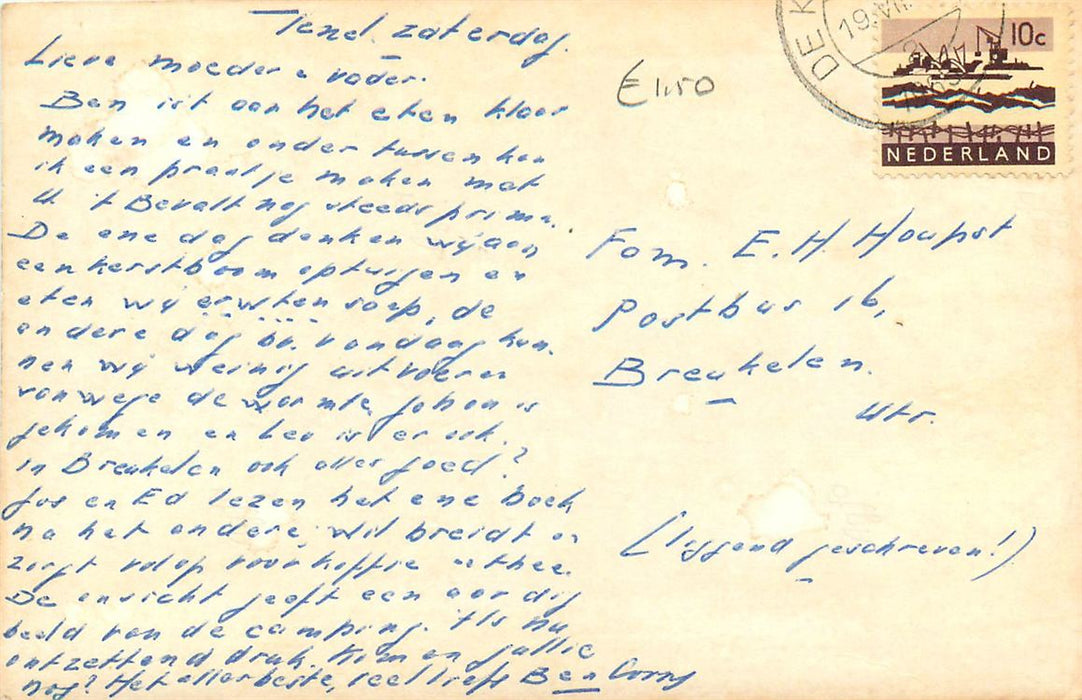 Texel. zaterdag.
Lieve moeder e vader.
Ben ist aan het eten klaar
maken en onder tussen kan
ik een praatje maken met
U 't Bevalt nog steeds prima.
De ene dag denken wij aan
een kerstboom optuigen en
eten wij erwten soep, de
andere dag bv. vandaag kun.
nen wij weinig uitvoeren
vanwege de warmte, Johan is
gekomen en Leo is er ook.
in Breukelen ook alles goed?
Jos en Ed lezen het ene boek
na het andere, Wil breidt en
zorgt volop voor koffie en thee.
De ansicht geeft een aardig
beeld van de camping. 't Is nu
ontzettend druk. Komen jullie
nog? Het allerbeste, veel liefs Ben
€1.50
DE K
19.VII.
10c
NEDERLAND
Fam. E. H. Haupst
Postbus 16,
Breukelen.
Utr.
(liggend geschreven!)